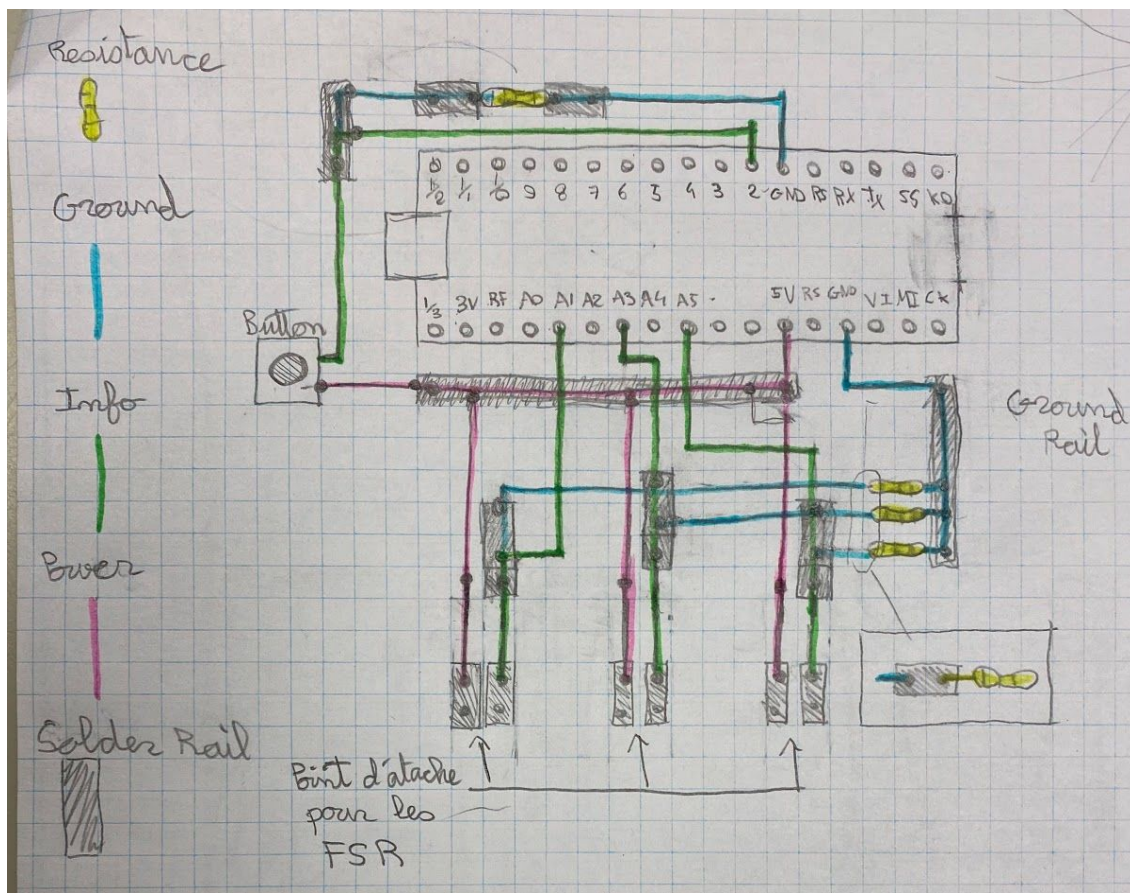 Resistance
Ground
Info
Power
Solder Rail
12 11 10 9 8 7 6 5 4 3 2 GND RS RX TX SS KO
13 3V RF A0 A1 A2 A3 A4 A5 · 5V RS GND VI MI CK
Button
Ground
Rail
Point d'atache
pour les
FSR